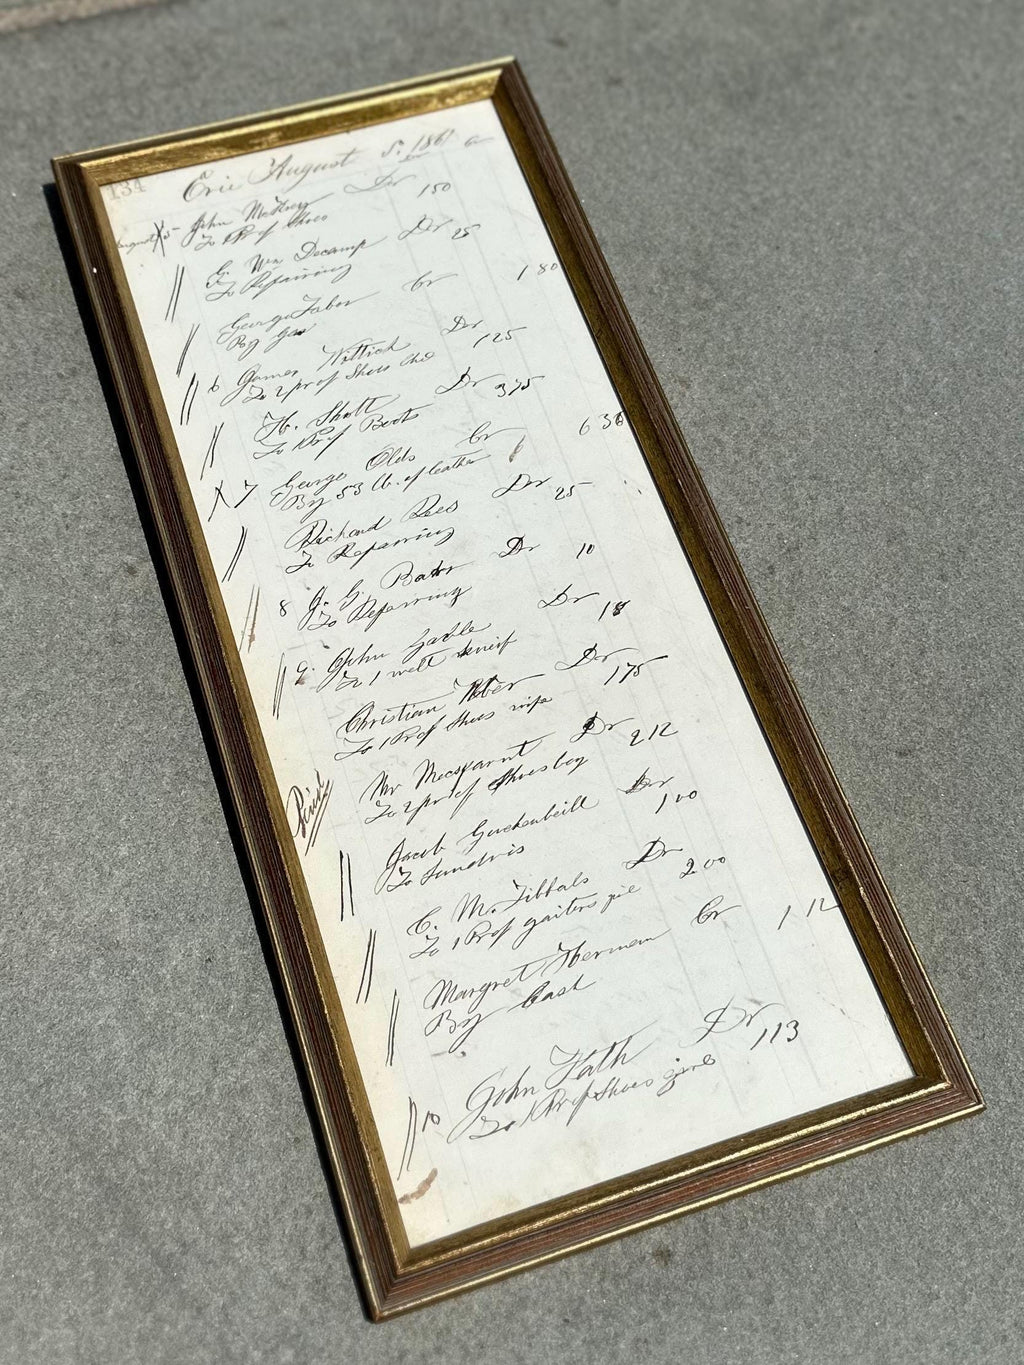 134
Erie August 5. 1861
August 5 John Dr 150
To 1 Pr of Shoes
G. Wm Decamp Dr 25
To Repairing
George Tabor Cr 1 80
By
6 James Wittich Dr 125
To 2 pr of Shoes
H. Shott Dr 375
To 1 Pr of Boots
7 George Olds Cr 6 36
By 53 lb. of leather
Richard Rees Dr 25
To Repairring
8 J. G. Dr 10
To Repairring
9. John Dr 18
To 1 welt kneif
Christian Dr 175
To 1 Pr of Shoes wife
Mr Dr 212
To 2 pr of Shoes boy
Paid
Jacob Dr 100
To Sundris
C. M. Tibbals Dr 200
To 1 Pr of gaiters
Margret Cr 1 12
By Cash
10 John Dr 113
To 1 Pr of Shoes girl